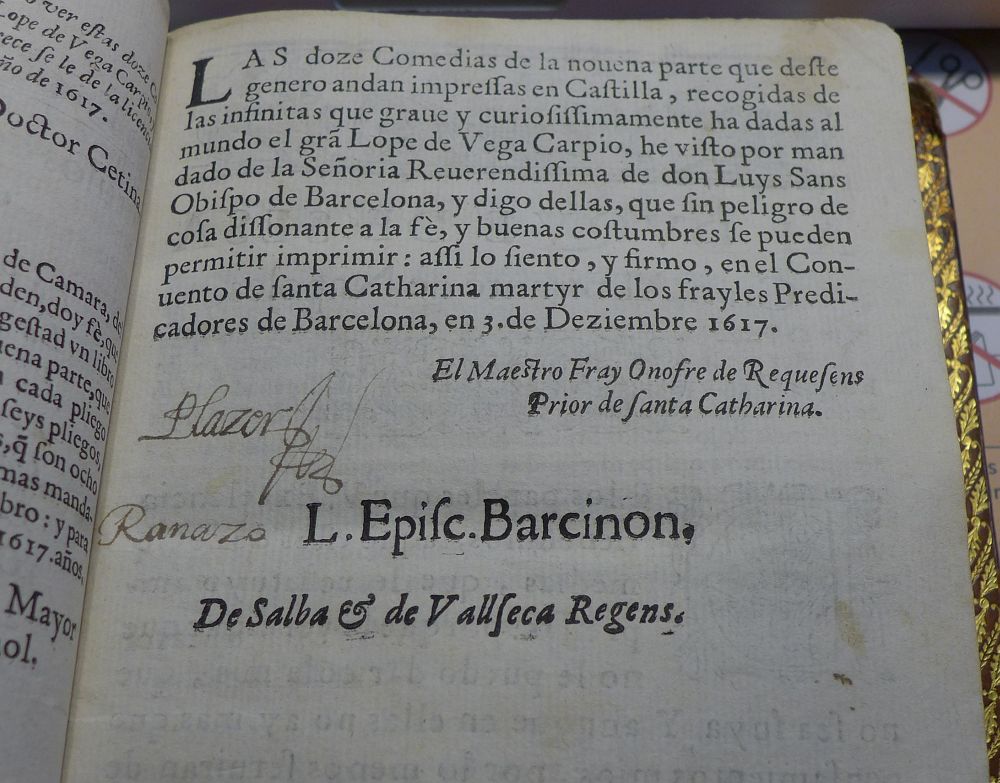 ver estas doze
Lope de Vega Carpio
rece se le de la licencia
ño de 1617.
Doctor Cetina
de Camara, de
den, doy fè, que
gestad vn libro
uena parte, que
cada pliego
seys pliegos,
s, q̃ son ocho
mas manda-
bro: y para
1617. años,
Mayor
ol.
LAS doze Comedias de la nouena parte que deste
genero andan impressas en Castilla, recogidas de
las infinitas que graue y curiosissimamente ha dadas al
mundo el grã Lope de Vega Carpio, he visto por man
dado de la Señoria Reuerendissima de don Luys Sans
Obispo de Barcelona, y digo dellas, que sin peligro de
cosa dissonante a la fè, y buenas costumbres se pueden
permitir imprimir: assi lo siento, y firmo, en el Con-
uento de santa Catharina martyr de los frayles Predi-
cadores de Barcelona, en 3. de Deziembre 1617.
El Maestro Fray Onofre de Requesens
Prior de santa Catharina.
Plazer
Ranazo
L. Episc. Barcinon.
De Salba & de Vallseca Regens.